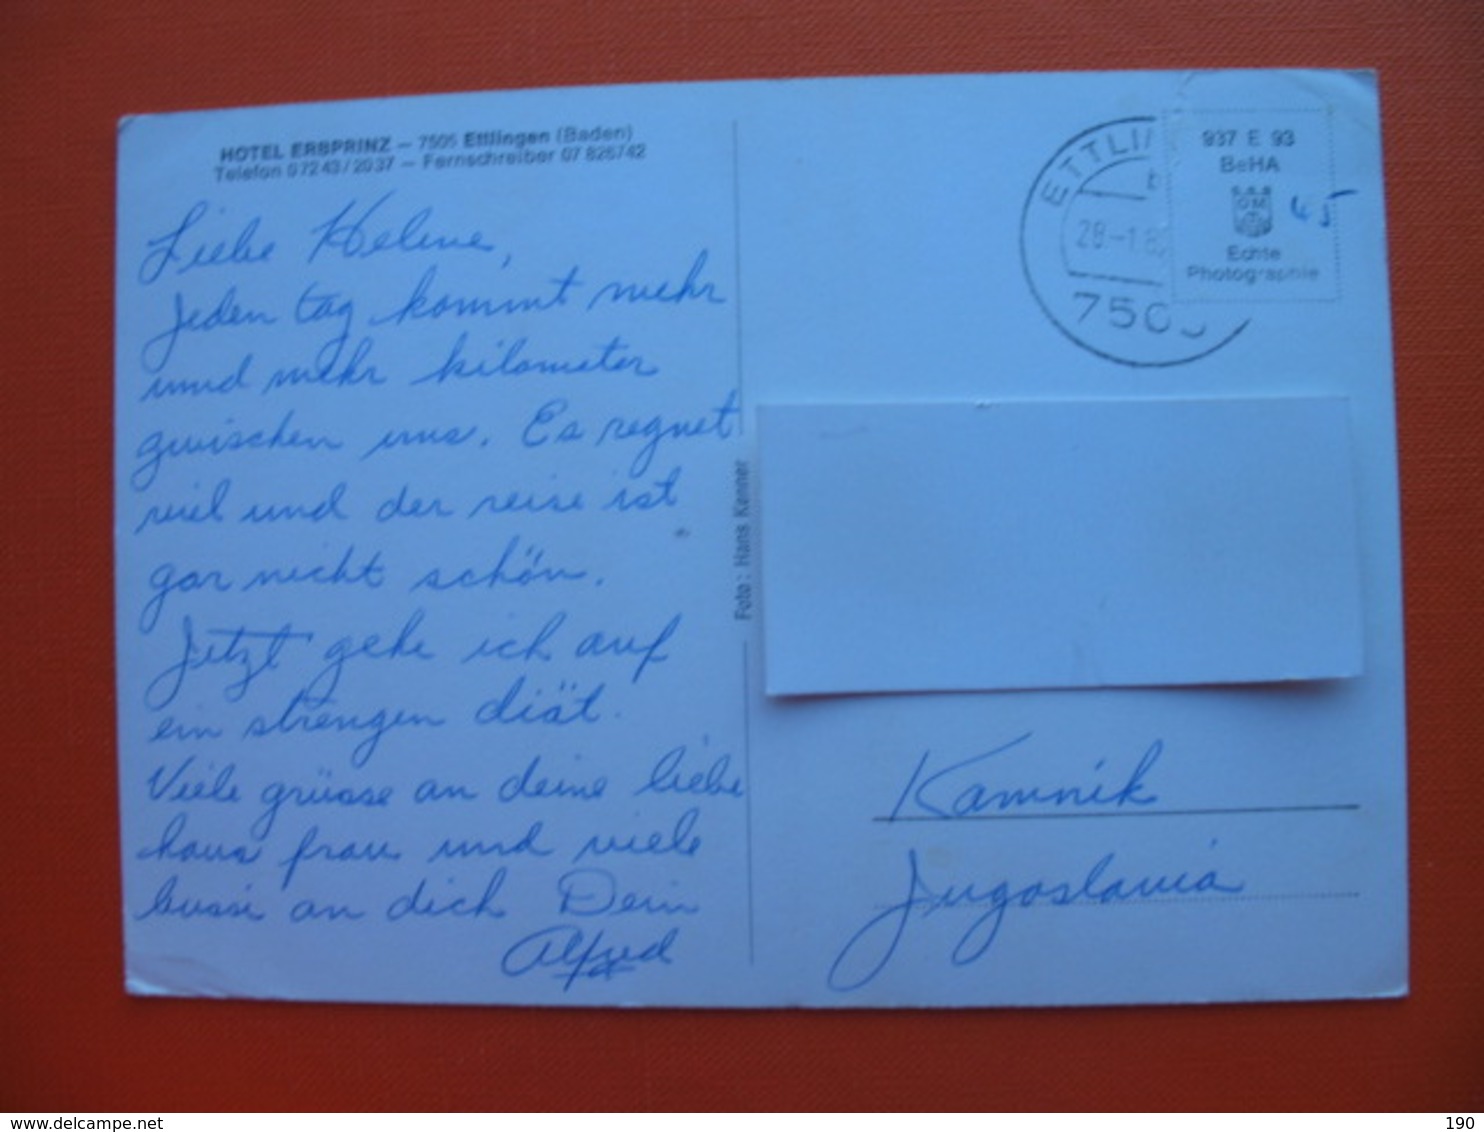 HOTEL ERBPRINZ — 7505 Ettlingen (Baden)
Telefon 07243/2037 — Fernschreiber 07 826742
Liebe Helene,
Jeden tag kommt mehr
und mehr kilometer
zwischen uns. Es regnet
viel und der reise ist
gar nicht schön.
Jetzt gehe ich auf
ein strengen diät.
Viele grüsse an deine liebe
haus frau und viele
bussi an dich Dein
Alfred
Foto: Hans Kenner
ETTLIN
28.-1.8
750
937 E 93
BeHA
45
Echte
Photographie
Kamnik
Jugoslavia
© delcampe.net
190